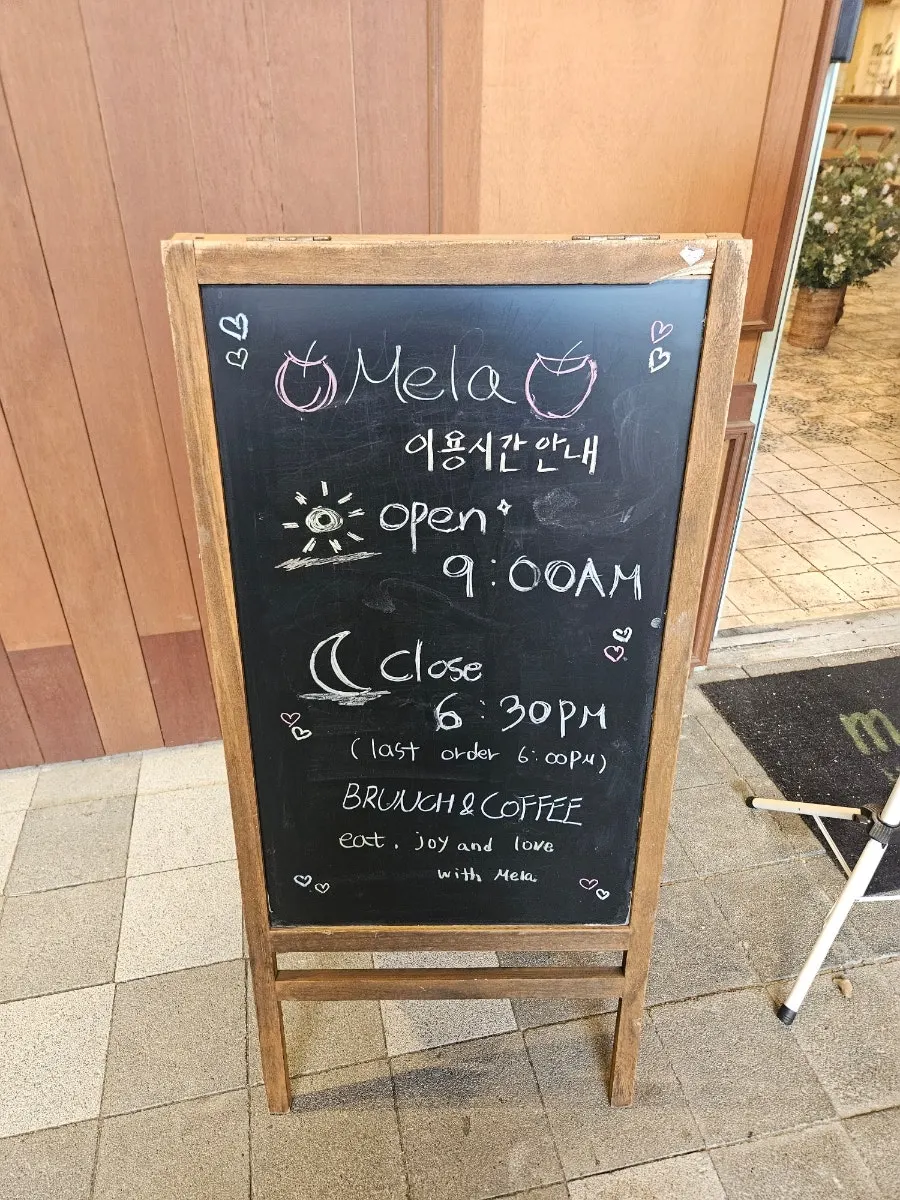 Mela
이용시간 안내
open
9:00AM
Close
6:30PM
(last order 6:00PM)
BRUNCH & COFFEE
eat. joy and love
with Mela.